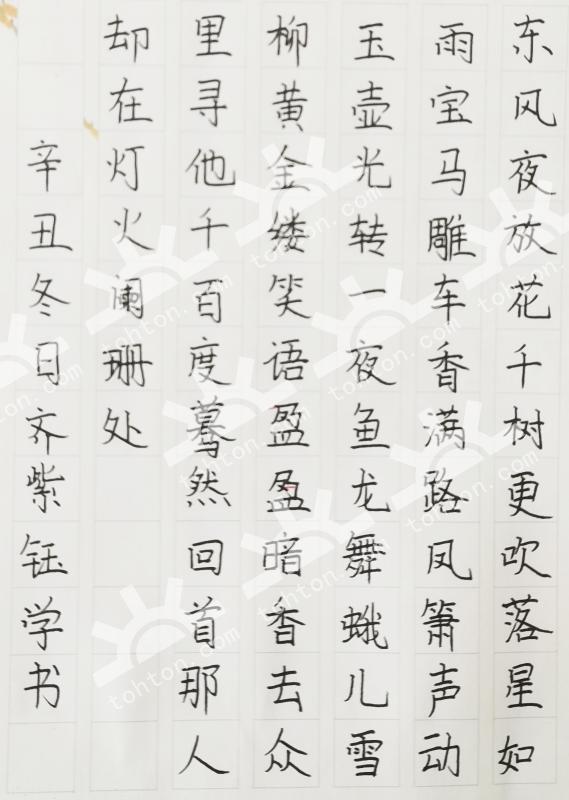 东风夜放花千树更吹落星如
雨宝马雕车香满路凤箫声动
玉壶光转一夜鱼龙舞蛾儿雪
柳黄金缕笑语盈盈暗香去众
里寻他千百度蓦然回首那人
却在灯火阑珊处
辛丑冬日齐紫钰学书
tohton.com
tohton.com
tohton.com
tohton.com
tohton.com
tohton.com
tohton.com
tohton.com